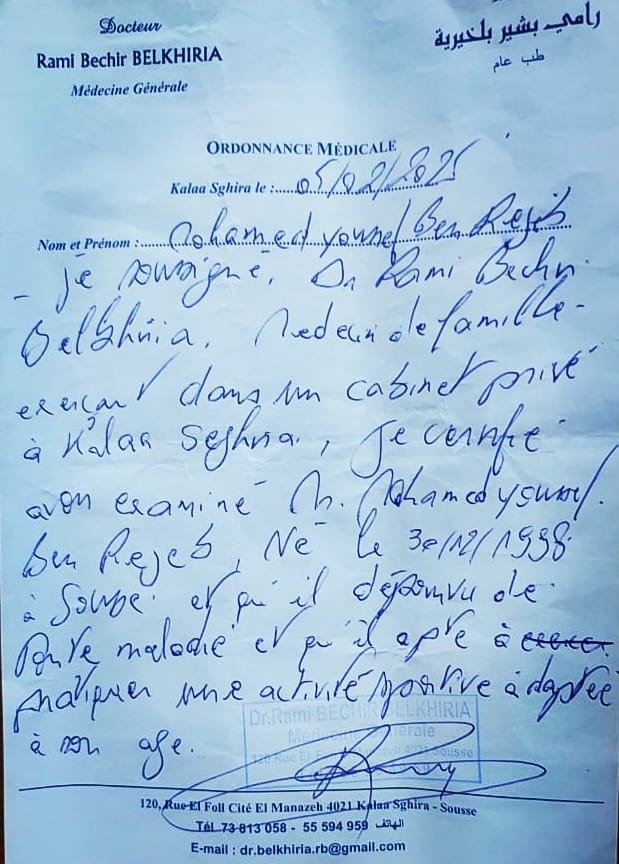 Docteur
Rami Bechir BELKHIRIA
Médecine Générale
رامي بشير بلخيرية
طب عام
ORDONNANCE MÉDICALE
Kalaa Sghira le :.....05/02/2025
Nom et Prénom :...... Mohamed youssef Ben Rejeb
- je soussigné, Dr Rami Bechir
Belkhiria, Medecin de famille
exerçant dans un cabinet privé
à Kalaa Seghira, je certifie
avoir examiné M. Mohamed youssef
Ben Rejeb, Né le 30/12/1998
à Sousse et qu'il dépourvu de
toute maladie et qu'il apte à
pratiquer une activité sportive adaptée
à son age.
Dr.Rami BECHIR BELKHIRIA
Médecine Générale
120 Rue El Foll Cité El Manazeh 4021 Sousse
120, Rue El Foll Cité El Manazeh 4021 Kalaa Sghira - Sousse
Tél 73 813 058 - 55 594 959 الهاتف
E-mail : dr.belkhiria.rb@gmail.com